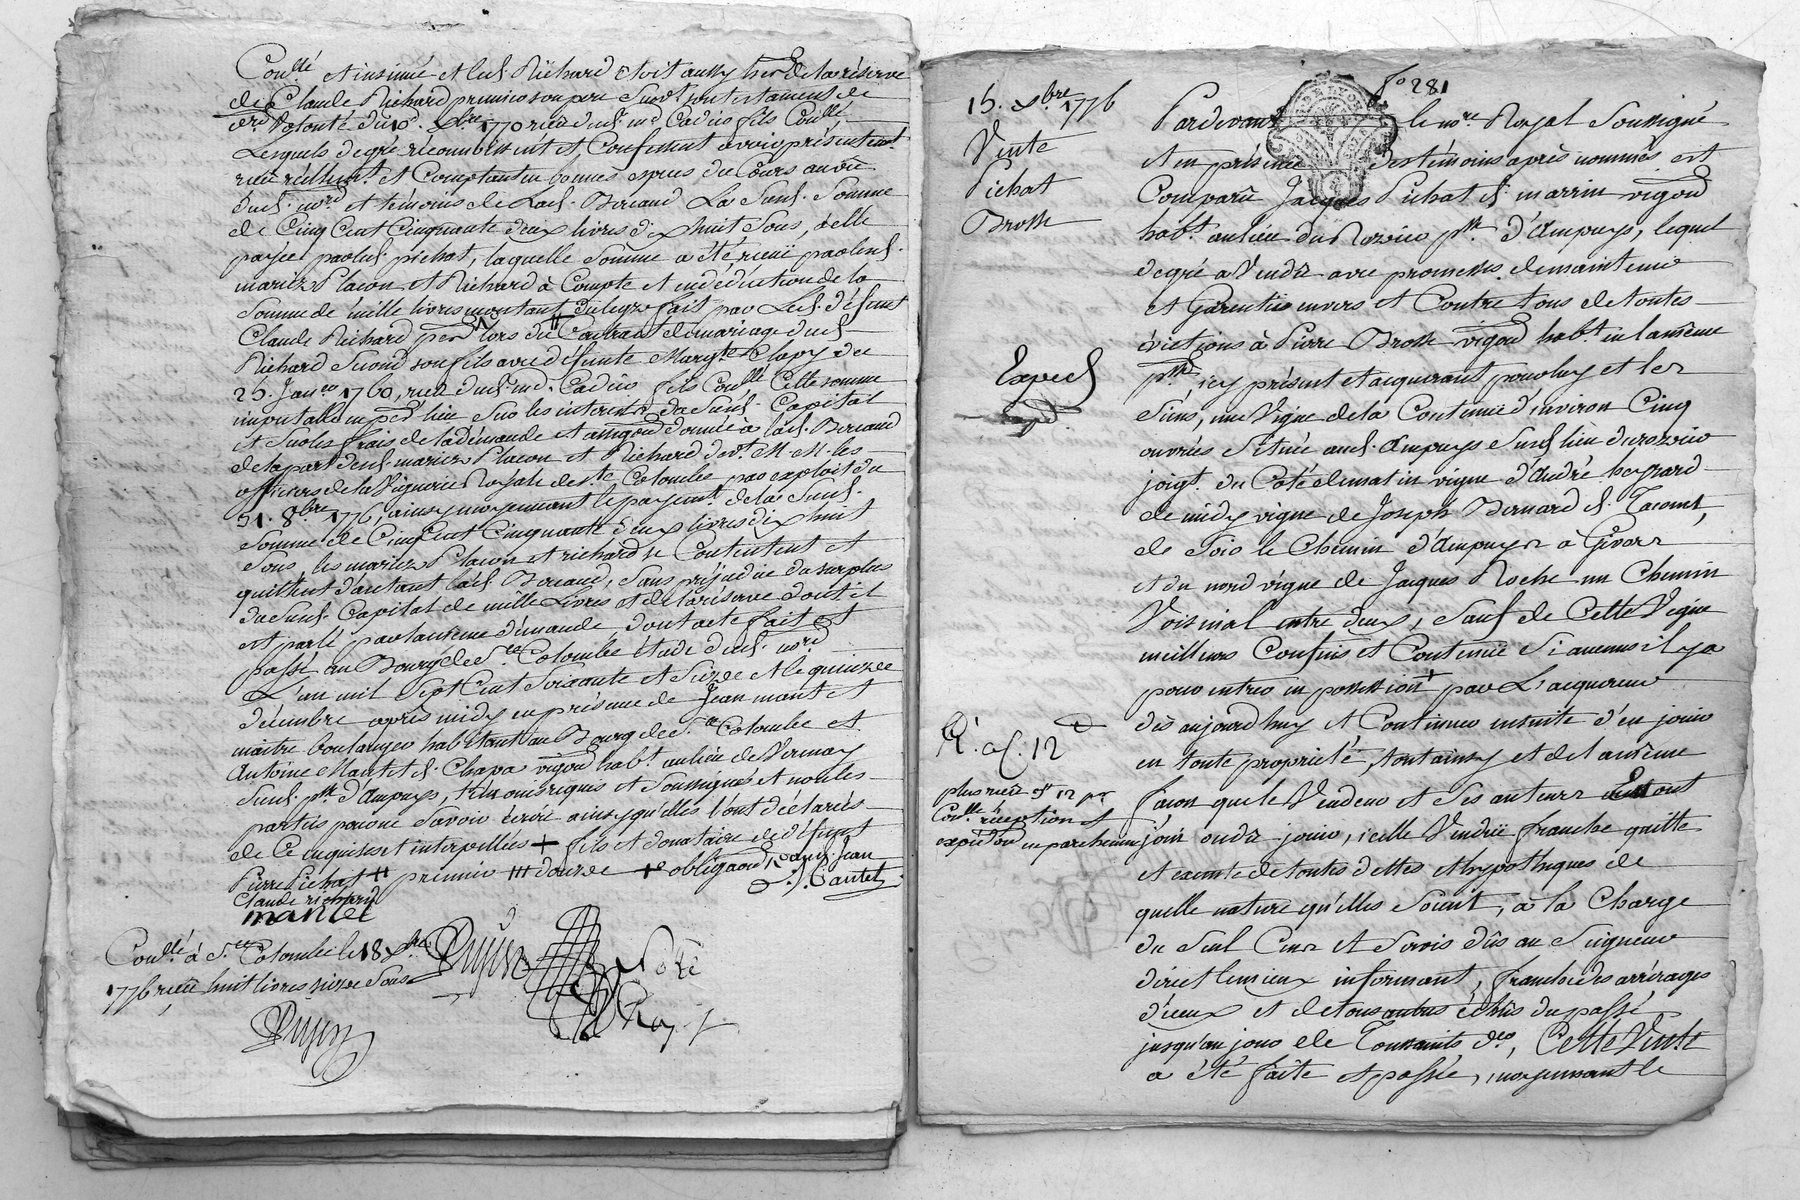 Conllé et insinué et led. Richard étoit aussy hér. de la réserve
de Claude Richard premier son père Suivt. son testament de
dre. Volonté du 10e. xbre 1770 reçu dud. me. Cadier fils Conllé
Lesquels de gré reconnoissent et Confessent avoir présentemt.
reçu réellemt. et Comptant en bonnes espèces du Cours au vu
dud. nore. et témoins de Lad. Beraud La Susd. Somme
de Cinq Cent Cinquante deux livres dix huit Sous, à elle
payée par led. pichat, laquelle Somme a été reçue par lesd.
mariez Placon et Richard à Compte et en déduction de la
Somme de mille livres montant du legs fait par Led. défunt
Claude Richard père lors du Contrat de mariage dud.
Richard Second son fils avec défunte Margte. Clapy du
25. Janer. 1760, reçu dud. me. Cadier fils Conllé Cette somme
imputable en per. lieu Sur les interets du Susd. Capital
et Sur les frais de la demande et assignaôn donnée à lad. Beraud
de la part desd. mariez Placon et Richard devt. M.M. les
officiers de la Viguerie Royale de Ste. Colombe par exploit du
31. 8bre 1776, ainsy moyennant le payement de la Susd.
Somme de Cinq Cent Cinquante deux livres dix huit
Sous, les mariez Placon et richard se Contentent et
quittent d'autant lad. Beraud, Sans préjudice du surplus
du Susd. Capital de mille Livres et de la réserve dont il
est parlé par la même demande dont acte fait et
passé au Bourg de Ste. Colombe étude dud. nore.
L'an mil Sept Cent Soixante et Seize et le quinze
décembre après midy en présence de Jean mantet
maitre boulanger habitant au Bourg de Ste. Colombe et
Antoine Mantet d. Chapa vigôn habt. au lieu de Vernay
Susd. psse. d'Ampuys, témoins requis et Soussignés et non les
parties pour ne Savoir écrire ainsy qu'elles l'ont déclaré
de Ce enquises et interpellées + fils et donataire de défunt
Pierre Pichat ++ premier +++ d'ouvree +e obligaôn Rdant Jean
Claude richard
mantet
Conllé à Ste. Colombe le 18 xbre
1776 reçu huit livres seize Sous
Dujin
15. xbre 1776
Vente
Pichat
Brosse
fo 281
Pardevant le nore. Royal Soussigné
et en présence des témoins après nommés est
Comparû Jacques Pichat d. marrin vigôn
habt. au lieu du Rozier psse. d'Ampuys, lequel
de gré a Vendû avec promesse de maintenir
et Garentir envers et Contre tous de toutes
évictions à Pierre Brosse vigôn habt. en la même
psse. icy présent et acquerant pour luy et les
Siens, une Vigne de la Contenuë d'environ Cinq
ouvrées Située aud. Ampuys Susd. lieu du rozier
joigt. du Coté de matin vigne d'André
de midy vigne de Joseph Bernard d.
de Soir le Chemin d'Ampuys à Givors
et du nord vigne de Jacques Roche un Chemin
Voisinal entre deux, Sauf de Cette Vigne
meilleurs Confins et Contenuë Si aucuns il y a
pour entrer en possession + par L'acquereur
dès aujourd'huy et Continuer ensuite d'en jouir
en toute propriété, tout ainsy et de la même
façon que le Vendeur et Ses auteurs en ont
joüi ou dû jouir, icelle Venduë franche quitte
et exemte de toutes dettes et hypothèques de
quelle nature qu'elles Soient, à la Charge
du Seul Cens et Servis dûs au Seigneur
direct le mieux informant, franche des arrérages
d'iceux et de tous autres échûs du passé
jusqu'au jour de Toussaints der., Cette Vente
a été faite et passée, moyennant le
Exped.
R. a/. 12 d
plus reçu 12 pr
Conlle réception et
expéditôn en parchemin